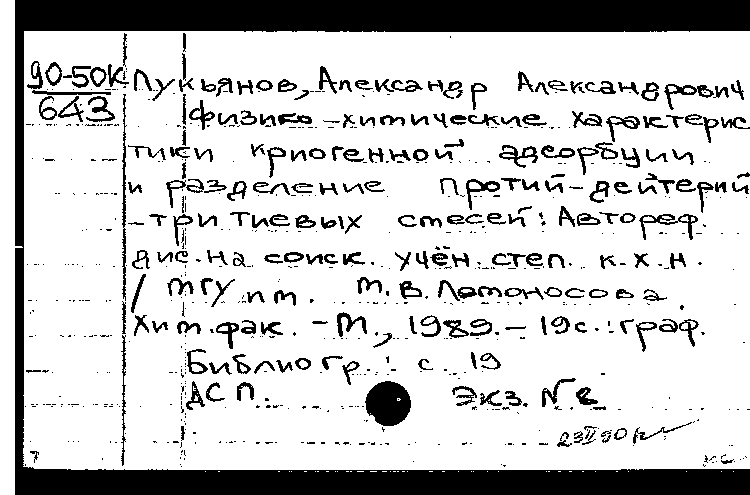 90-50К
643
Лукьянов, Александр Александрович
Физико-химические характерис
тики криогенной адсорбции
и разделение протий-дейтерий
-тритиевых смесей: Автореф.
дис. на соиск. учён. степ. к.х.н.
/ МГУ им. М.В. Ломоносова.
Хим. фак. - М., 1989. - 19с.: граф.
Библиогр.: с. 19
ДСП. Экз. № 2
7